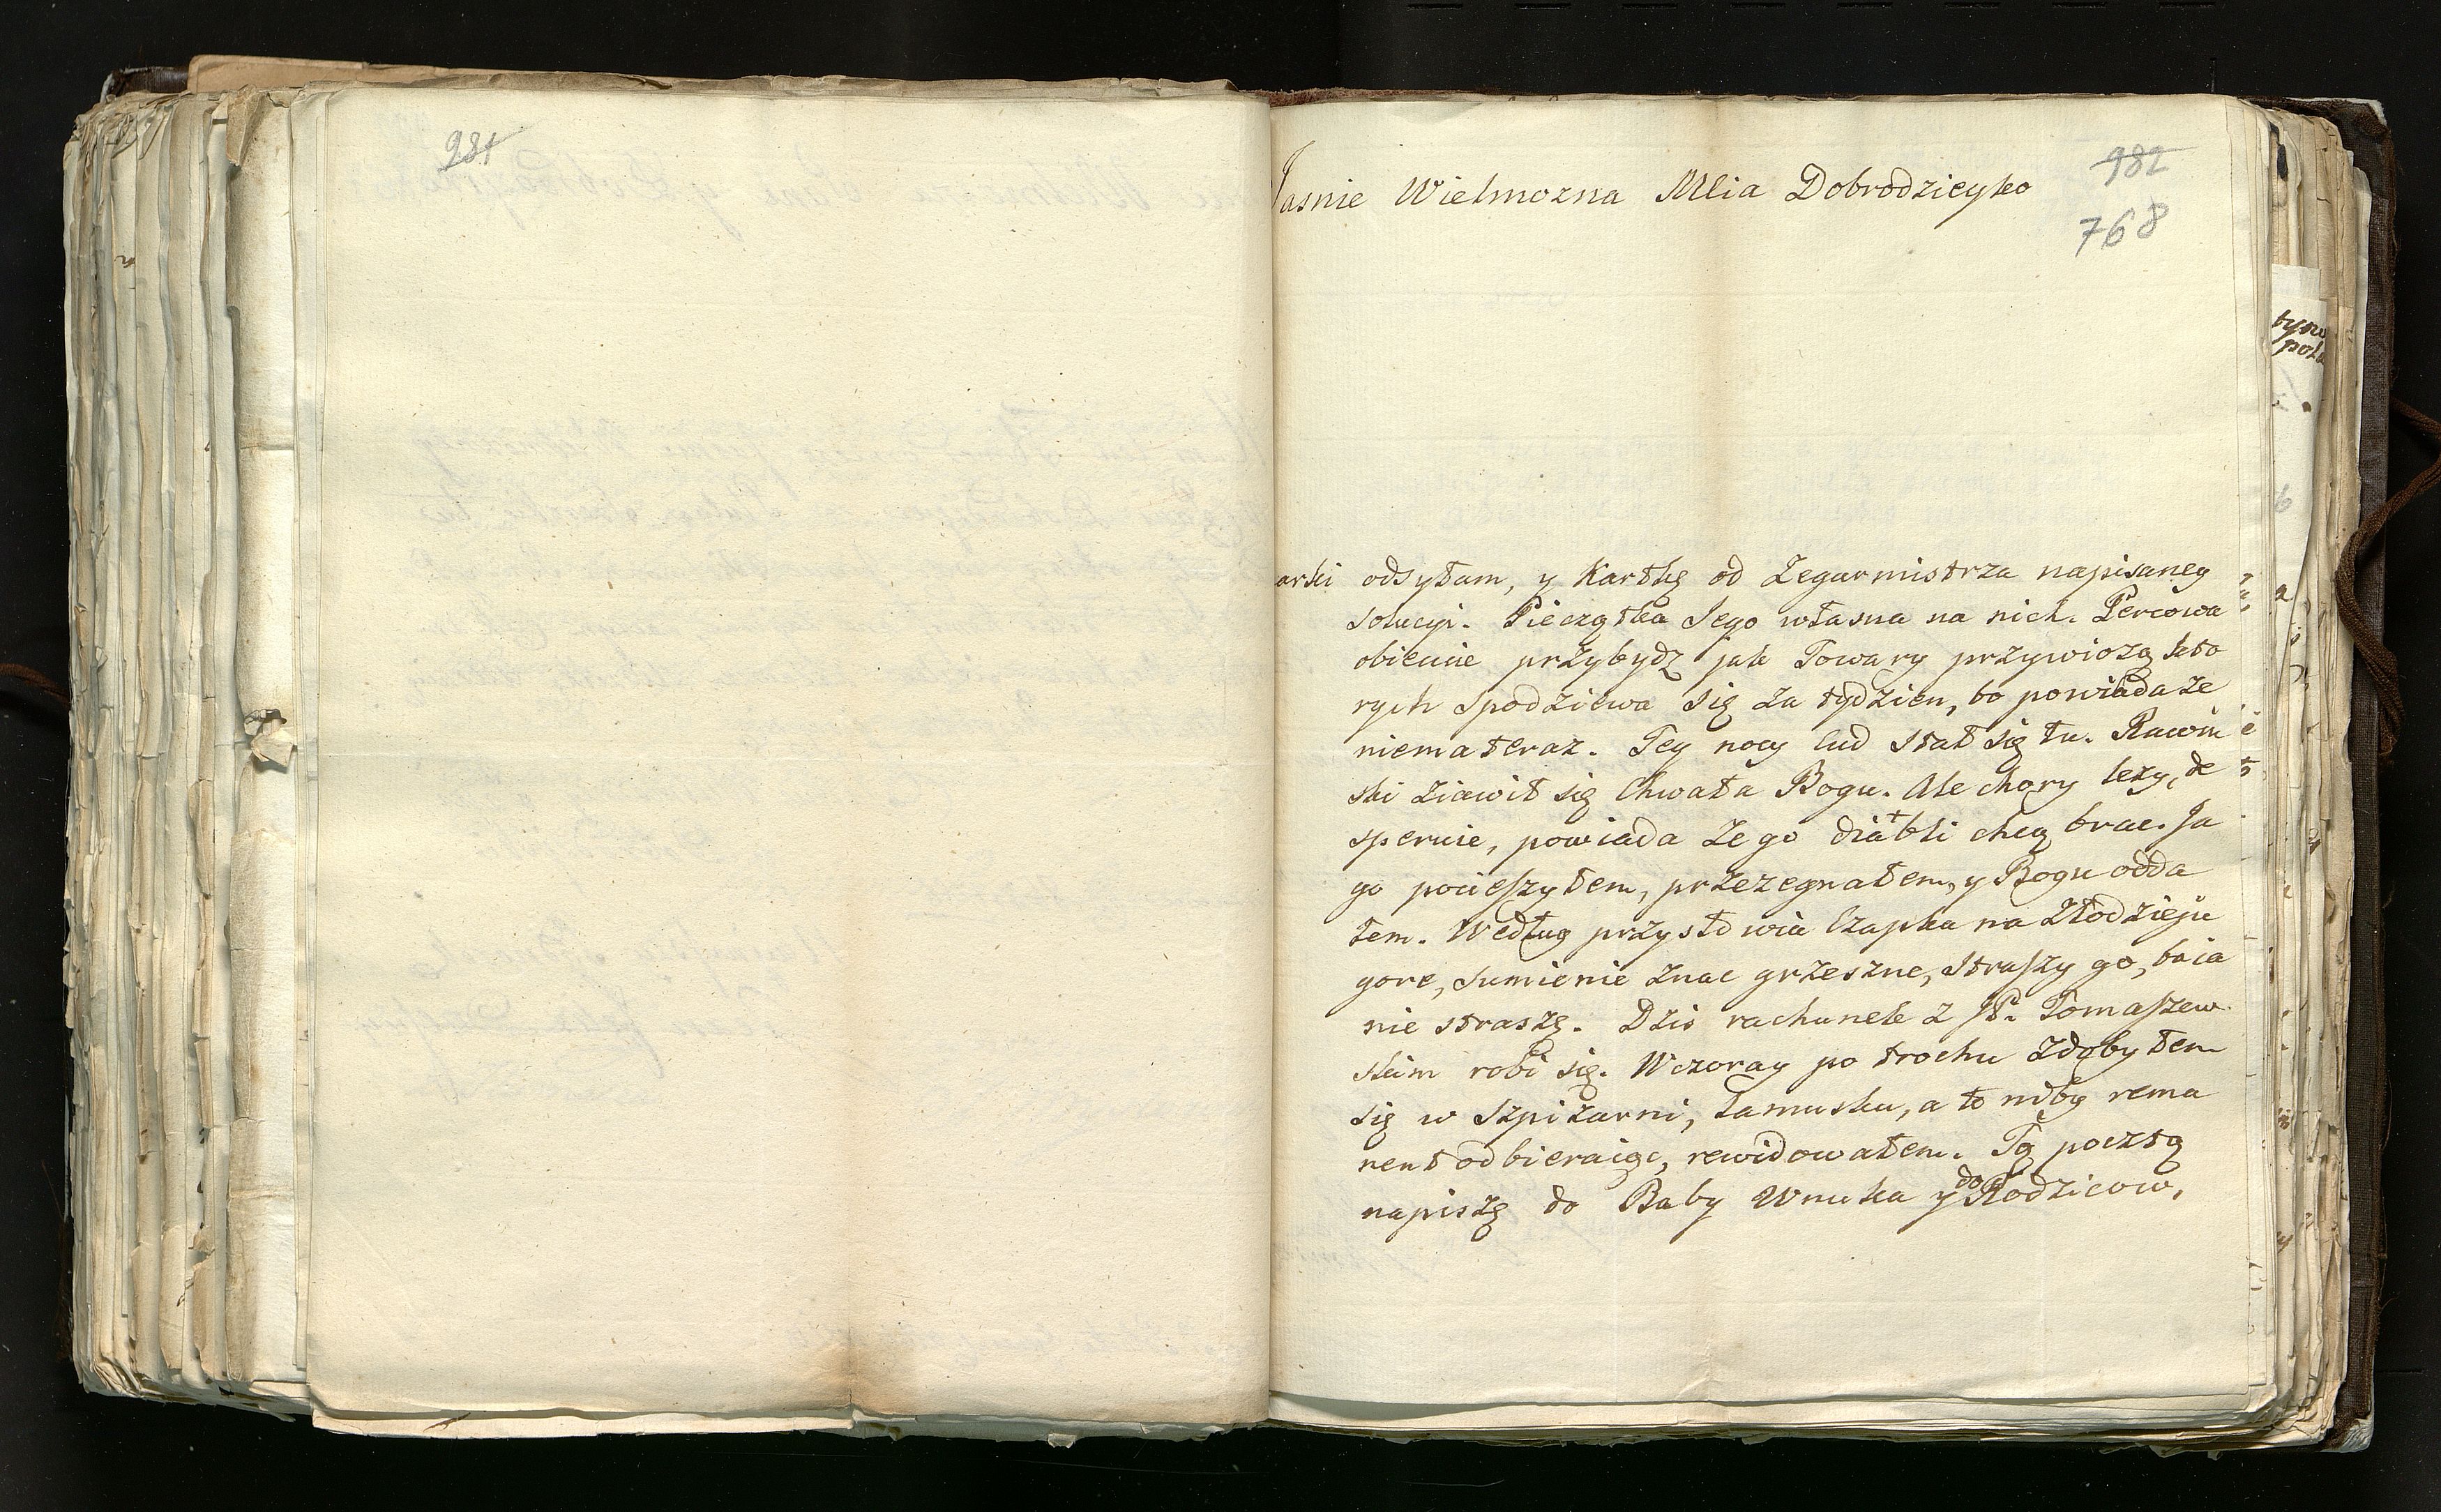 981
982
768
Jasnie Wielmozna Mcia Dobrodzieyko
arki odsyłam, y Kartkę od Zegarmistrza napisaney
solucyi. Pieczątka Jego własna na nich. Percowa
obiecuie przybydz jak Towary przywiozą kto
rych spodziewa się za tydzien, bo powiada ze
niema teraz. Tey nocy Cud stał się tu. Rawin
ski ziawił się Chwała Bogu. Ale chory lezy, de
speruie, powiada ze go diabli chcą brac. Ja
go pocieszyłem, przezegnałem, y Bogu odda
łem. Według przysłowia Czapka na Złodzieju
gore, sumienie znac grzeszne, straszy go, bo ia
nie straszę. Dzis rachunek z JP. Tomaszew
skim robi się. Wczoray po trochu zdobyłem
się w Szpizarni, Lamusku, a to niby rema
nent odbieraiąc, rewidowałem. Tą pocztą
napiszę do Baby Wnuka y do Rodzicow,